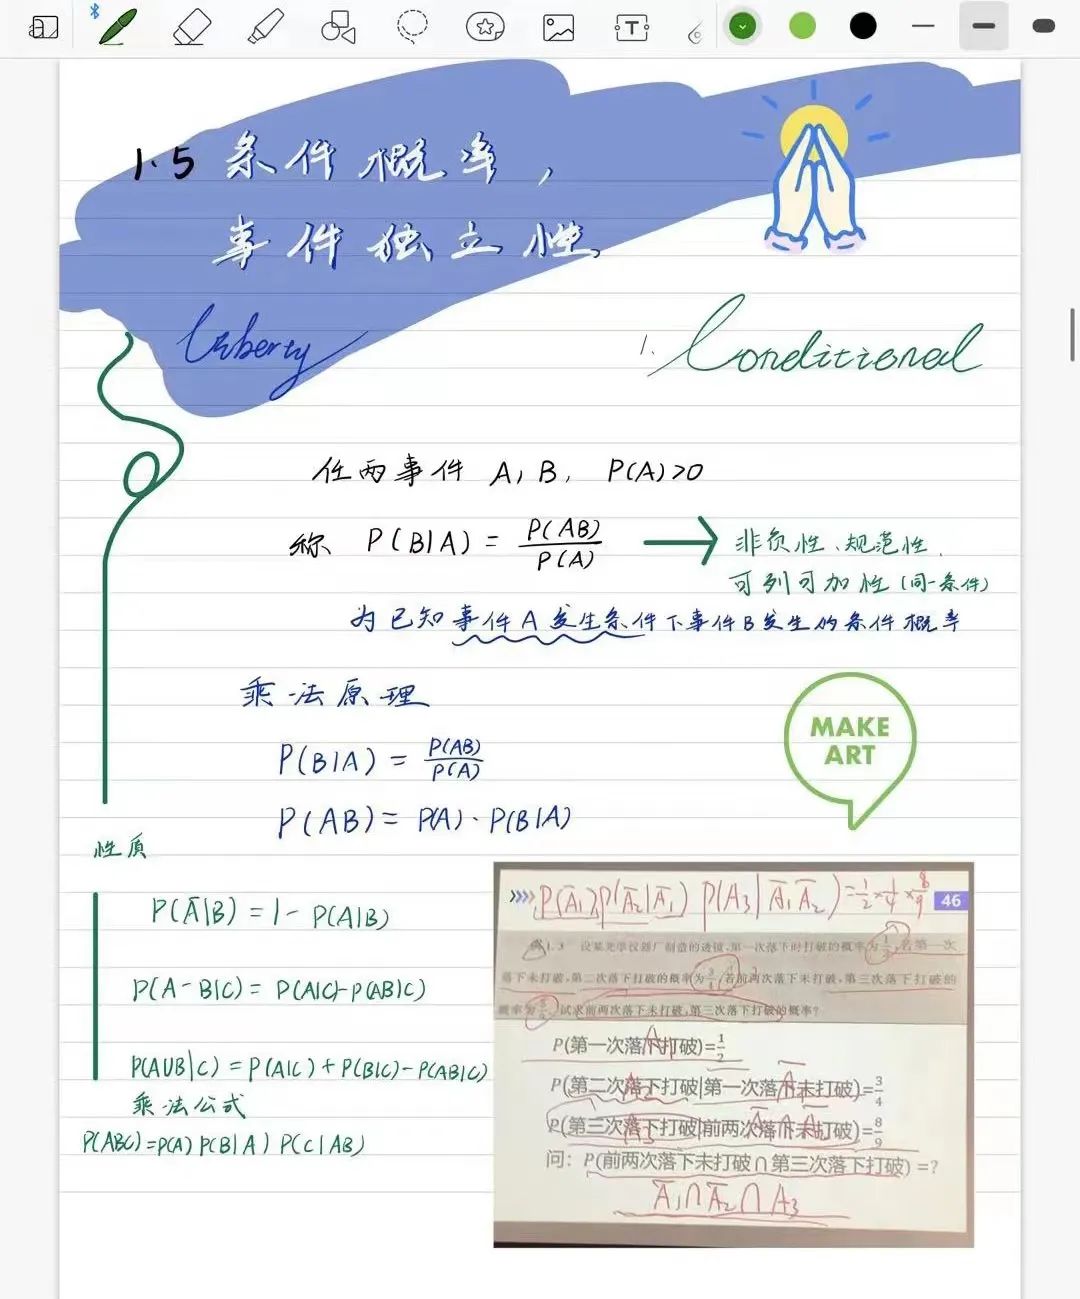 1.5 条件概率,
事件独立性
Liberty
1. Conditional
任两事件 A, B, P(A)>0
称 P(B|A) = P(AB)/P(A) → 非负性、规范性、
可列可加性(同一条件)
为已知事件A发生条件下事件B发生的条件概率
乘法原理
P(B|A) = P(AB)/P(A)
P(AB) = P(A)·P(B|A)
MAKE
ART
性质
P(A̅|B) = 1 - P(A|B)
P(A-B|C) = P(A|C)-P(AB|C)
P(AUB|C) = P(A|C) + P(B|C) - P(AB|C)
乘法公式
P(ABC)=P(A)P(B|A)P(C|AB)
P(A̅₁)P(A̅₂|A̅₁) P(A₃|A̅₁A̅₂)=1/2×1/4×8/9
46
1.3 设某光学仪器厂制造的透镜,第一次落下时打破的概率为1/2,若第一次
落下未打破,第二次落下打破的概率为3/4,若前两次落下未打破,第三次落下打破的
概率为8/9,试求前两次落下未打破,第三次落下打破的概率?
P(第一次落下打破)=1/2
P(第二次落下打破|第一次落下未打破)=3/4
P(第三次落下打破|前两次落下未打破)=8/9
问: P(前两次落下未打破∩第三次落下打破) =?
A̅₁∩A̅₂∩A₃